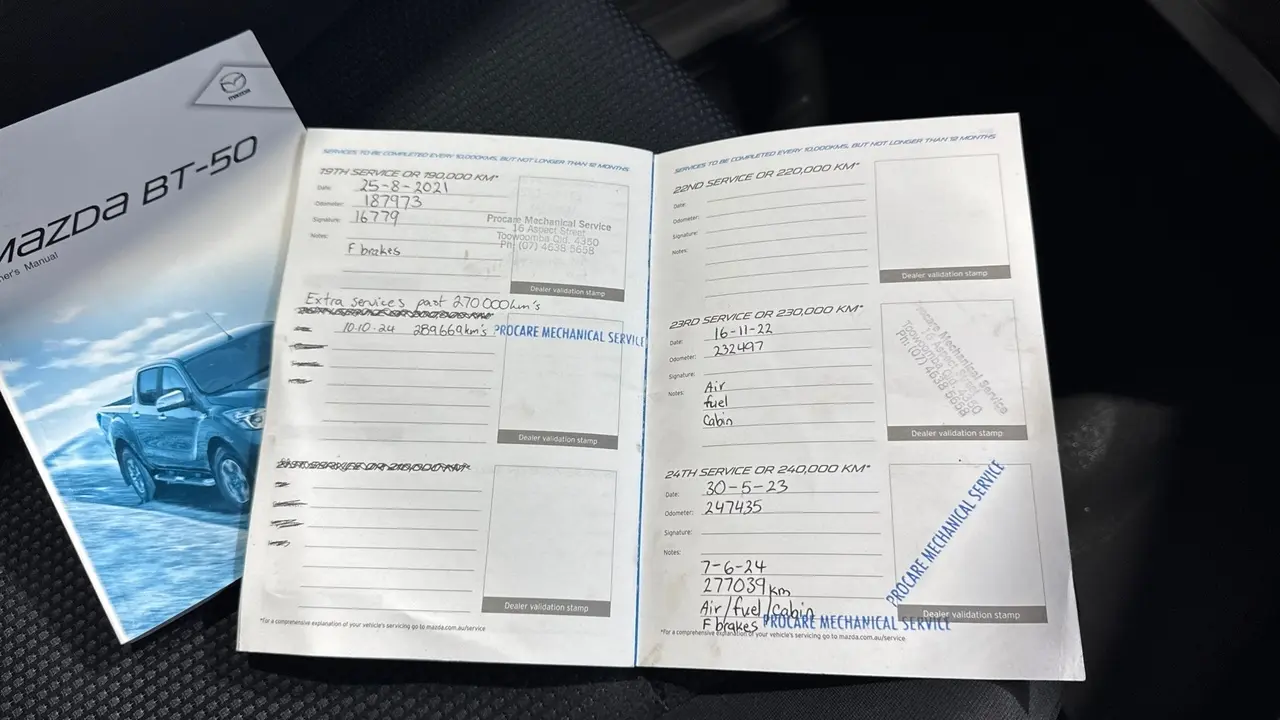 mazda
Mazda BT-50
ner's Manual
SERVICES TO BE COMPLETED EVERY 10,000KMS, BUT NOT LONGER THAN 12 MONTHS
19TH SERVICE OR 190,000 KM*
Date: 25-8-2021
Odometer: 187973
Signature: 16779
Notes:
F brakes
Procare Mechanical Service
16 Aspect Street
Toowoomba Qld. 4350
Ph: (07) 4638 5658
Dealer validation stamp
Extra services past 270 000km's
10.10.24 289669km's
PROCARE MECHANICAL SERVICE
Dealer validation stamp
Dealer validation stamp
*For a comprehensive explanation of your vehicle's servicing go to mazda.com.au/service
SERVICES TO BE COMPLETED EVERY 10,000KMS, BUT NOT LONGER THAN 12 MONTHS
22ND SERVICE OR 220,000 KM*
Date:
Odometer:
Signature:
Notes:
Dealer validation stamp
23RD SERVICE OR 230,000 KM*
Date: 16-11-22
Odometer: 232497
Signature:
Notes:
Air
fuel
Cabin
Procare Mechanical Service
16 Aspect Street
Toowoomba Qld. 4350
Ph: (07) 4638 5658
Dealer validation stamp
24TH SERVICE OR 240,000 KM*
Date: 30-5-23
Odometer: 247435
Signature:
Notes:
7-6-24
277039 km
Air/fuel/Cabin
F brakes
PROCARE MECHANICAL SERVICE
Dealer validation stamp
PROCARE MECHANICAL SERVICE
*For a comprehensive explanation of your vehicle's servicing go to mazda.com.au/service.